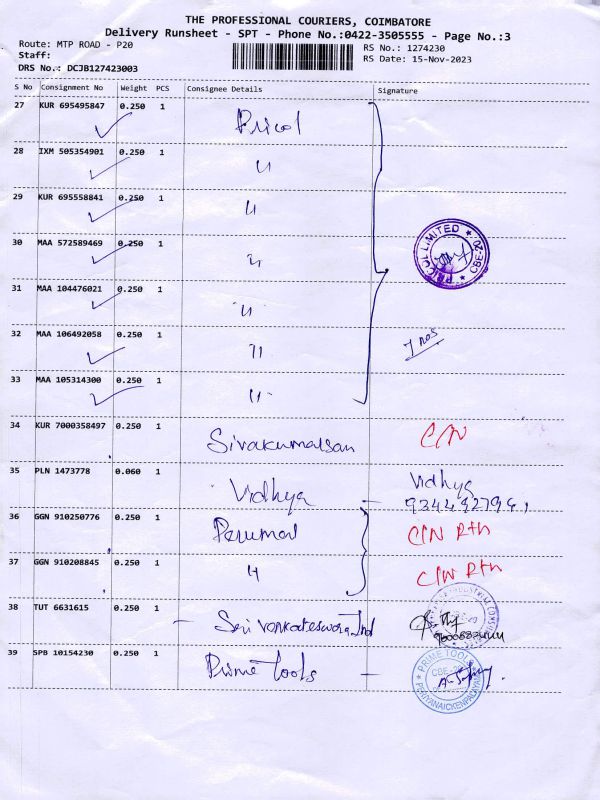 THE PROFESSIONAL COURIERS, COIMBATORE
Delivery Runsheet - SPT - Phone No.:0422-3505555 - Page No.:3
Route: MTP ROAD - P20 RS No.: 1274230
Staff: RS Date: 15-Nov-2023
DRS No.: DCJB127423003
S No Consignment No Weight PCS Consignee Details Signature
27 KUR 695495847 0.250 1 Pricol
28 IXM 505354901 0.250 1 "
29 KUR 695558841 0.250 1 "
30 MAA 572589469 0.250 1 "
31 MAA 104476021 0.250 1 "
32 MAA 106492058 0.250 1 " 7 nos
33 MAA 105314300 0.250 1 "
PRICOL LIMITED ★ CBE-20 ★
34 KUR 7000358497 0.250 1 Sivakumarsan C/N
35 PLN 1473778 0.060 1 Vidhya - Vidhya
36 GGN 910250776 0.250 1 Perumal C/N Rtn
37 GGN 910208845 0.250 1 " C/N Rtn
38 TUT 6631615 0.250 1 - Sri Venkateswara Ind
39 SPB 10154230 0.250 1 Prime Tools -
PRIME TOOLS
PERIYANAICKENPALAYAM